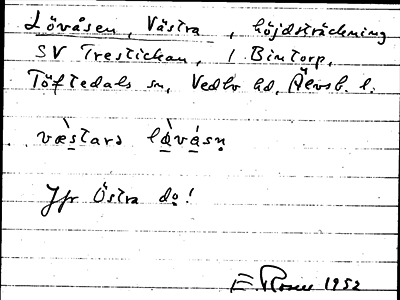 Lövåsen, Västra, höjdsträckning
SV Trestickan, i Bintorp,
Töftedals sn, Vedbo hd, Älvsb. l.
væ̀starə lø̀våsn̥
Jfr Östra do!
E. Rosell 1952